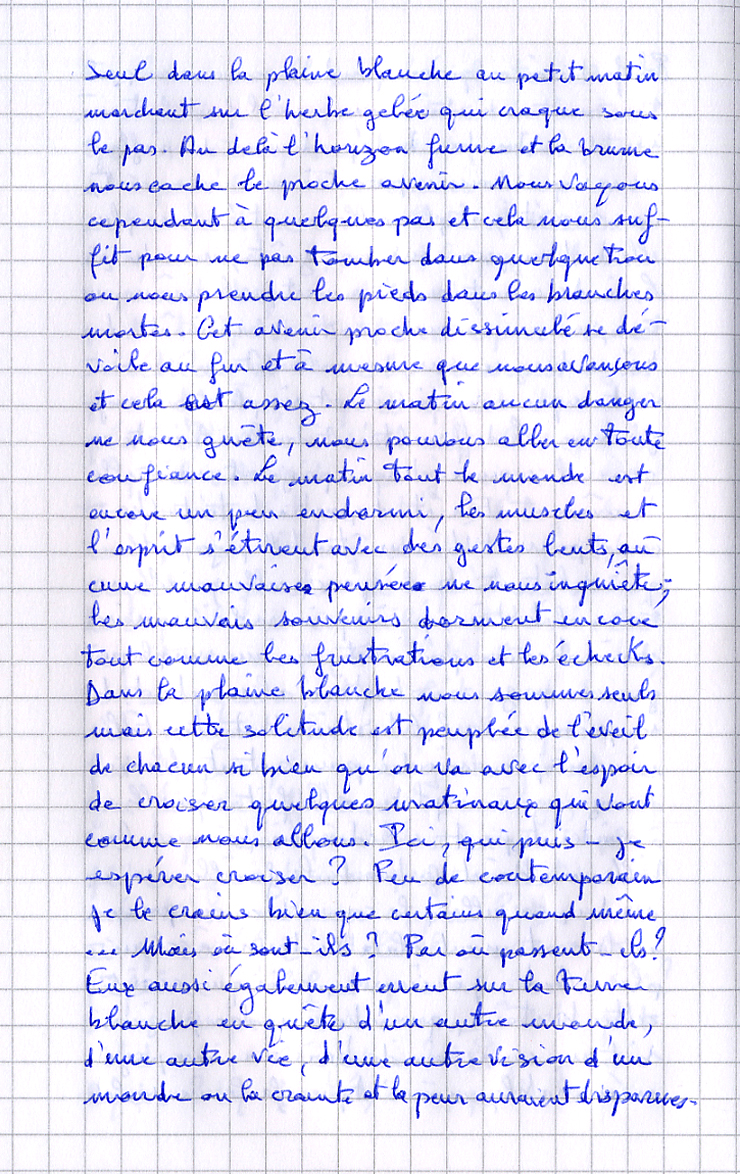 Seul dans la plaine blanche au petit matin
marchant sur l'herbe gelée qui craque sous
le pas. Au delà l'horizon fume et la brume
nous cache le proche avenir. Nous voyons
cependant à quelques pas et cela nous suf-
fit pour ne pas tomber dans quelque trou
ou nous prendre les pieds dans les branches
mortes. Cet avenir proche dissimulé se dé-
voile au fur et à mesure que nous avançons
et cela est assez. Le matin aucun danger
ne nous guète, nous pouvons aller en toute
confiance. Le matin tout le monde est
encore un peu endormi, les muscles et
l'esprit s'étirent avec des gestes lents, au
cune mauvaise pensée ne nous inquiète ;
les mauvais souvenirs dorment encore
tout comme les frustrations et les échecs.
Dans la plaine blanche nous sommes seuls
mais cette solitude est peuplée de l'éveil
de chacun si bien qu'on va avec l'espoir
de croiser quelques matinaux qui vont
comme nous allons. Ici, qui puis-je
espérer croiser ? Peu de contemporain
je le crains bien que certains quand même
... Mais où sont-ils ? Par où passent-ils ?
Eux aussi également errent sur la terre
blanche en quête d'un autre monde,
d'une autre vie, d'une autre vision d'un
monde ou la crainte et la peur auraient disparues.